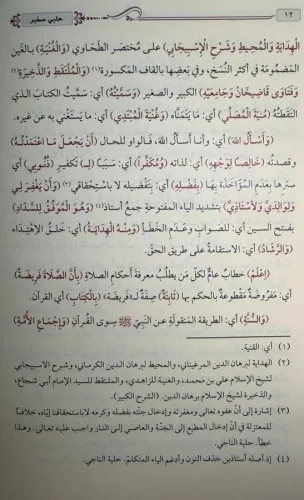 ١٢
حلبي صغير
الْهِدَايَةِ وَالْمُحِيطِ وَشَرْحِ الْإِسْبِيجَابِي) على مُختصَر الطحاوي (وَالْغُنْيَةِ) بالغَين
المَضمُومَة في أكثر النُّسَخ، وفي بَعضِها بالقاف المكسورة(١) (وَالْمُلْتَقَطِ وَالذَّخِيرَةِ)(٢)
(وَفَتَاوَى قَاضِيخَانَ وَجَامِعَيْهِ) الكبير والصغير (وَسَمَّيْتُهُ) أي: سَمَّيتُ الكتابَ الذي
التَقَطتُهُ (مُنْيَةَ الْمُصَلِّي) أي: ما يَتَمنَّاه (وَغُنْيَةَ الْمُبْتَدِي) أي: ما يَستَغْني به عن غيره.
(وَأَسْأَلُ اللهَ) أي: وأنا أسألُ اللهَ، فالواو للحال (أَنْ يَجْعَلَ مَا اعْتَمَدْتُهُ)
وقصدتُه (خَالِصًا لِوَجْهِهِ) أي: لذاته (وَمُكَفِّرًا) أي: سَبَبًا (لِـ) تَكفيرِ (ذُنُوبِي) أي
سترها بعَدَمِ المُؤاخَذة بها (بِفَضْلِهِ) أي: بتَفَضُّلِه لا باستحقاقي(٣) (وَأَنْ يَغْفِرَ لِي
وَلِوَالِدَيَّ وَلِأُسْتَاذِيَّ) بتشديد الياء المفتوحة جمعُ أستاذ(٤) (وَهُوَ الْمُوَفِّقُ لِلسَّدَادِ)
بفتح السين أي: للصواب وعَدَمِ الخَطَأِ (وَمِنْهُ الْهِدَايَةُ) أي: خَلْقُ الاهتداء
(وَالرَّشَادُ) أي: الاستقامةُ على طريق الحقّ.
(اِعْلَمْ) خطابٌ عامٌّ لكلّ مَن يطلُبُ معرفةَ أحكام الصلاة (بِأَنَّ الصَّلَاةَ فَرِيضَةٌ)
أي: مَفرُوضَةٌ مَقطُوعةٌ بالحكم بها (ثَابِتَةٌ) صِفةٌ لـ«فريضة» (بِالْكِتَابِ) أي القرآن.
(وَالسُّنَّةِ) أي: الطريقة المَنقولة عن النبيّ ﷺ سِوى القُرآن (وَإِجْمَاعِ الْأُمَّةِ)
(١) أي: القنية.
(٢) الهداية لبرهان الدين المرغيناني، والمحيط لبرهان الدين الكرماني، وشرح الاسبيجابي
لشيخ الإسلام علي بن محمد، والغنية للزاهدي، والملتقط للسيد الإمام أبي شجاع،
والذخيرة لشيخ الإسلام برهان الدين. (الشرح الكبير).
(٣) إشارة إلى أنّ عفوه تعالى ومغفرته وإدخال جنّته بفضله وكرمه لا باستحقاقنا إيّاه، خلافًا
للمعتزلة في أنّ إدخال المطيع إلى الجنّة والعاصي إلى النار واجب عليه تعالى. وهذا
خطأ. حلية الناجي.
(٤) إذ أصله أستاذين حذف النون وأدغم الياء المتكلم. حلية الناجي.